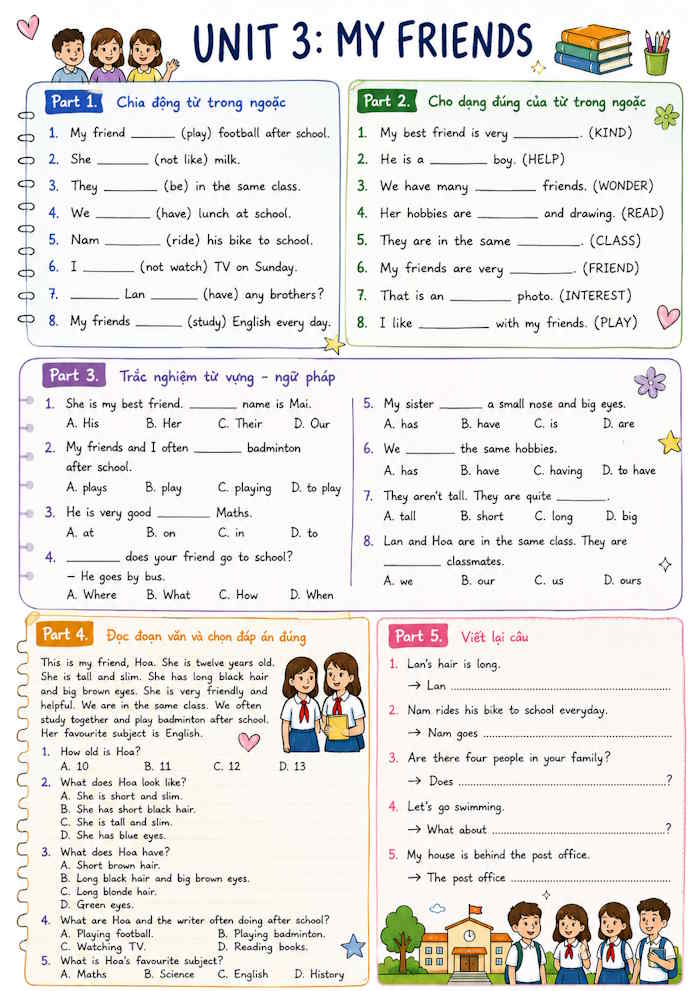 UNIT 3: MY FRIENDS
Part 1. Chia động từ trong ngoặc
1. My friend ______ (play) football after school.
2. She ______ (not like) milk.
3. They ______ (be) in the same class.
4. We ______ (have) lunch at school.
5. Nam ______ (ride) his bike to school.
6. I ______ (not watch) TV on Sunday.
7. ______ Lan ______ (have) any brothers?
8. My friends ______ (study) English every day.
Part 2. Cho dạng đúng của từ trong ngoặc
1. My best friend is very ______. (KIND)
2. He is a ______ boy. (HELP)
3. We have many ______ friends. (WONDER)
4. Her hobbies are ______ and drawing. (READ)
5. They are in the same ______. (CLASS)
6. My friends are very ______. (FRIEND)
7. That is an ______ photo. (INTEREST)
8. I like ______ with my friends. (PLAY)
Part 3. Trắc nghiệm từ vựng - ngữ pháp
1. She is my best friend. ______ name is Mai.
A. His B. Her C. Their D. Our
2. My friends and I often ______ badminton
after school.
A. plays B. play C. playing D. to play
3. He is very good ______ Maths.
A. at B. on C. in D. to
4. ______ does your friend go to school?
– He goes by bus.
A. Where B. What C. How D. When
5. My sister ______ a small nose and big eyes.
A. has B. have C. is D. are
6. We ______ the same hobbies.
A. has B. have C. having D. to have
7. They aren't tall. They are quite ______.
A. tall B. short C. long D. big
8. Lan and Hoa are in the same class. They are
______ classmates.
A. we B. our C. us D. ours
Part 4. Đọc đoạn văn và chọn đáp án đúng
This is my friend, Hoa. She is twelve years old.
She is tall and slim. She has long black hair
and big brown eyes. She is very friendly and
helpful. We are in the same class. We often
study together and play badminton after school.
Her favourite subject is English.
1. How old is Hoa?
A. 10 B. 11 C. 12 D. 13
2. What does Hoa look like?
A. She is short and slim.
B. She has short black hair.
C. She is tall and slim.
D. She has blue eyes.
3. What does Hoa have?
A. Short brown hair.
B. Long black hair and big brown eyes.
C. Long blonde hair.
D. Green eyes.
4. What are Hoa and the writer often doing after school?
A. Playing football. B. Playing badminton.
C. Watching TV. D. Reading books.
5. What is Hoa's favourite subject?
A. Maths B. Science C. English D. History
Part 5. Viết lại câu
1. Lan's hair is long.
→ Lan ........................................
2. Nam rides his bike to school everyday.
→ Nam goes ........................................
3. Are there four people in your family?
→ Does ........................................?
4. Let's go swimming.
→ What about ........................................?
5. My house is behind the post office.
→ The post office ........................................